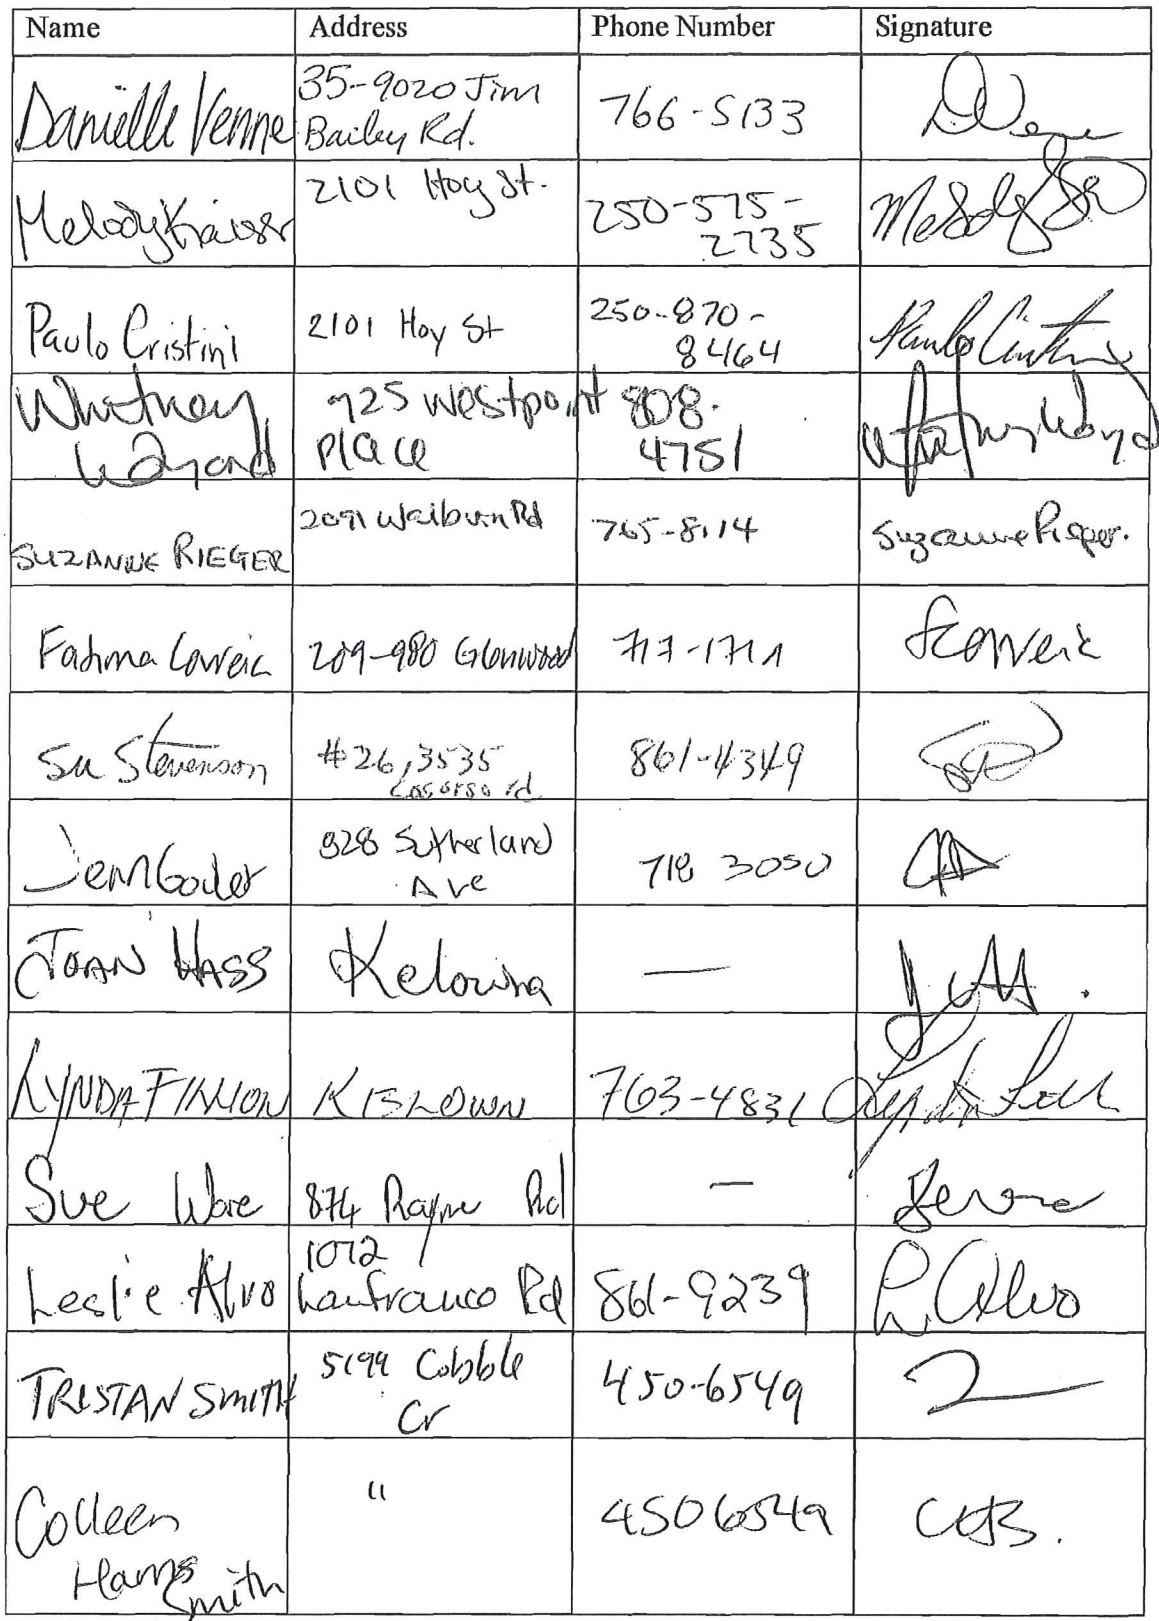 Name Address Phone Number Signature
Danielle Venne 35-9020 Jim Bailey Rd. 766-5133
Melody 2101 Hoy St. 250-575-2735 Melody
Paulo Cristini 2101 Hoy St 250-870-8464 Paulo
Whitney 925 Westpoint Place 808-4751 Whitney
SUZANNE RIEGER 2091 Rd 765-8114 Suzanne Rieger.
Fatima Correia 209-980 Glenwood 717-1711 FCorreia
Su Stevenson #26, 3535 Casorso rd 861-4349
828 Sutherland Ave 718 3050
JOAN HASS Kelowna —
LYNDA 763-4831 Lynda
Sue Ware 874 Raymer Rd —
Leslie Alvo 1072 Lanfranco Rd 861-9239 L. Alvo
TRISTAN SMITH 5199 Cobble Cr 450-6549
Colleen Harris Smith " 450 6549